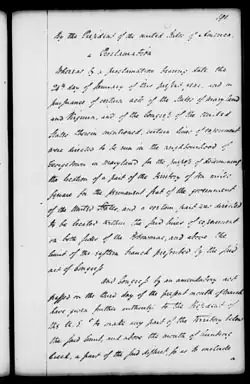 By the President of the United States of America.
a Proclamation
Whereas by a proclamation bearing date the
24th day of January of this present year, and in
pursuance of certain acts of the States of Maryland
and Virginia, and of the Congress of the United
States therein mentioned, certain lines of experiment
were directed to be run in the neighbourhood of
Georgetown in Maryland for the purpose of determining
the location of a part of the territory of ten miles
square for the permanent seat of the government
of the United States, and a certain part was directed
to be located within the said lines of experiment
on both sides of the Potomac, and above the
limit of the Eastern branch prescribed by the said
act of Congress
And Congress by an amendatory act
passed on the third day of the present month of March
have given further authority to the President of
the U. S. to make any part of the territory below
the said limit and above the mouth of Hunting
Creek, a part of the said district, so as to include